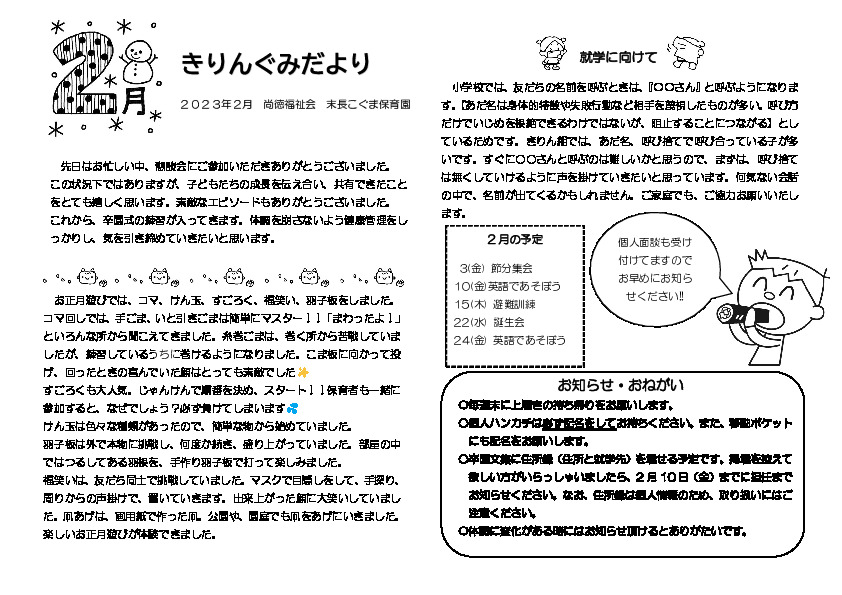 2月
きりんぐみだより
2023年2月 尚徳福祉会 末長こぐま保育園
先日はお忙しい中、懇談会にご参加いただきありがとうございました。
この状況下ではありますが、子どもたちの成長を伝え合い、共有できたこと
をとても嬉しく思います。素敵なエピソードもありがとうございました。
これから、卒園式の練習が入ってきます。体調を崩さないよう健康管理をし
っかりし、気を引き締めていきたいと思います。
お正月遊びでは、コマ、けん玉、すごろく、福笑い、羽子板をしました。
コマ回しでは、手ごま、いと引きごまは簡単にマスター!!「まわったよ!」
といろんな所から聞こえてきました。糸巻ごまは、巻く所から苦戦していま
したが、練習しているうちに巻けるようになりました。こま板に向かって投
げ、回ったときの喜んでいた顔はとっても素敵でした🌟
すごろくも大人気。じゃんけんで順番を決め、スタート!!保育者も一緒に
参加すると、なぜでしょう?必ず負けてしまいます💦
けん玉は色々な種類があったので、簡単な物から始めていました。
羽子板は外で本物に挑戦し、何度か続き、盛り上がっていました。部屋の中
ではつるしてある羽根を、手作り羽子板で打って楽しみました。
福笑いは、友だち同士で挑戦していました。マスクで目隠しをして、手探り、
周りからの声掛けで、置いていきます。出来上がった顔に大笑いしていまし
た。凧あげは、画用紙で作った凧。公園や、園庭でも凧をあげにいきました。
楽しいお正月遊びが体験できました。
就学に向けて
小学校では、友だちの名前を呼ぶときは、『〇〇さん』と呼ぶようになりま
す。【あだ名は身体的特徴や失敗行動など相手を蔑視したものが多い。呼び方
だけでいじめを根絶できるわけではないが、阻止することにつながる】とし
ているためです。きりん組では、あだ名、呼び捨てで呼び合っている子が多
いです。すぐに〇〇さんと呼ぶのは難しいかと思うので、まずは、呼び捨て
は無くしていけるように声を掛けていきたいと思っています。何気ない会話
の中で、名前が出てくるかもしれません。ご家庭でも、ご協力お願いいたし
ます。
2月の予定
3(金) 節分集会
10(金)英語であそぼう
15(木) 避難訓練
22(水) 誕生会
24(金) 英語であそぼう
個人面談も受け
付けてますので
お早めにお知ら
せください!!
お知らせ・おねがい
〇毎週末に上履きの持ち帰りをお願いします。
〇個人ハンカチは必ず記名をしてお持ちください。また、移動ポケット
にも記名をお願いします。
〇卒園文集に住所録(住所と就学先)を載せる予定です。掲載を控えて
欲しい方がいらっしゃいましたら、2月10日(金)までに担任まで
お知らせください。なお、住所録は個人情報のため、取り扱いにはご
注意ください。
〇体調に変化がある時にはお知らせ頂けるとありがたいです。